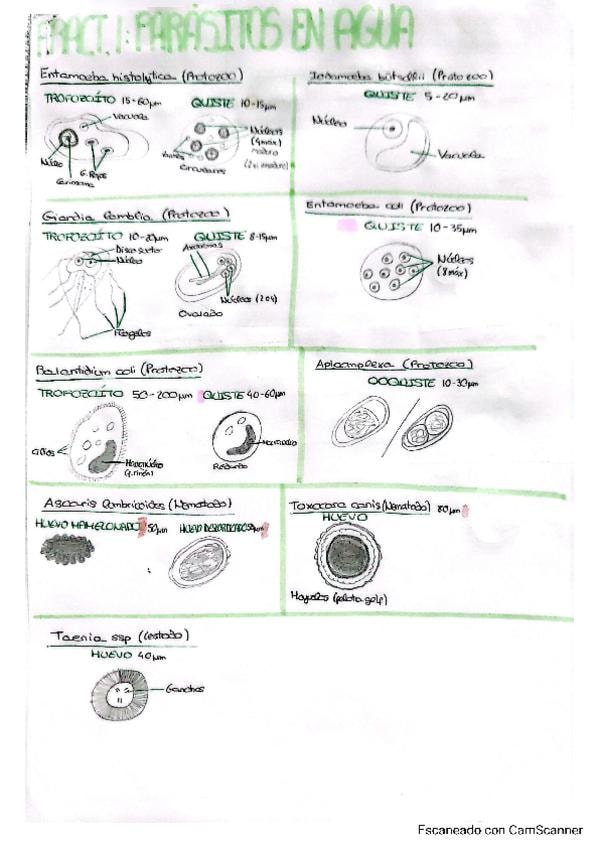 PRACT. 1: PARÁSITOS EN AGUA
Entamoeba histolytica (Protozoo)
TROFOZOÍTO 15-60µm
QUISTE 10-15µm
Vacuola
Núcleo
G. Rojos
Cariosoma
Núcleos
(4 máx)
maduro
Circulares
Iodamoeba bütschlii (Protozoo)
QUISTE 5-20µm
Núcleo
Vacuola
Giardia lamblia (Protozoo)
TROFOZOÍTO 10-20µm
QUISTE 8-15µm
Disco suctor
Núcleo
Flagelos
Axonemas
Núcleos (2 o 4)
Ovalado
Entamoeba coli (Protozoo)
QUISTE 10-35µm
Núcleos
(8 máx)
Balantidium coli (Protozoo)
TROFOZOÍTO 50-200µm
QUISTE 40-60µm
Cilios
Macronúcleo
(f. riñón)
Macronúcleo
Redondo
Apicomplexa (Protozoo)
OOQUISTE 10-30µm
Ascaris lumbricoides (Nematodo)
HUEVO MAMELONADO 50µm
HUEVO DECORTICADO 50µm
Toxocara canis (Nematodo) 80µm
HUEVO
Hoyuelos (pelota golf)
Taenia ssp (Cestodo)
HUEVO 40µm
Ganchos
Escaneado con CamScanner